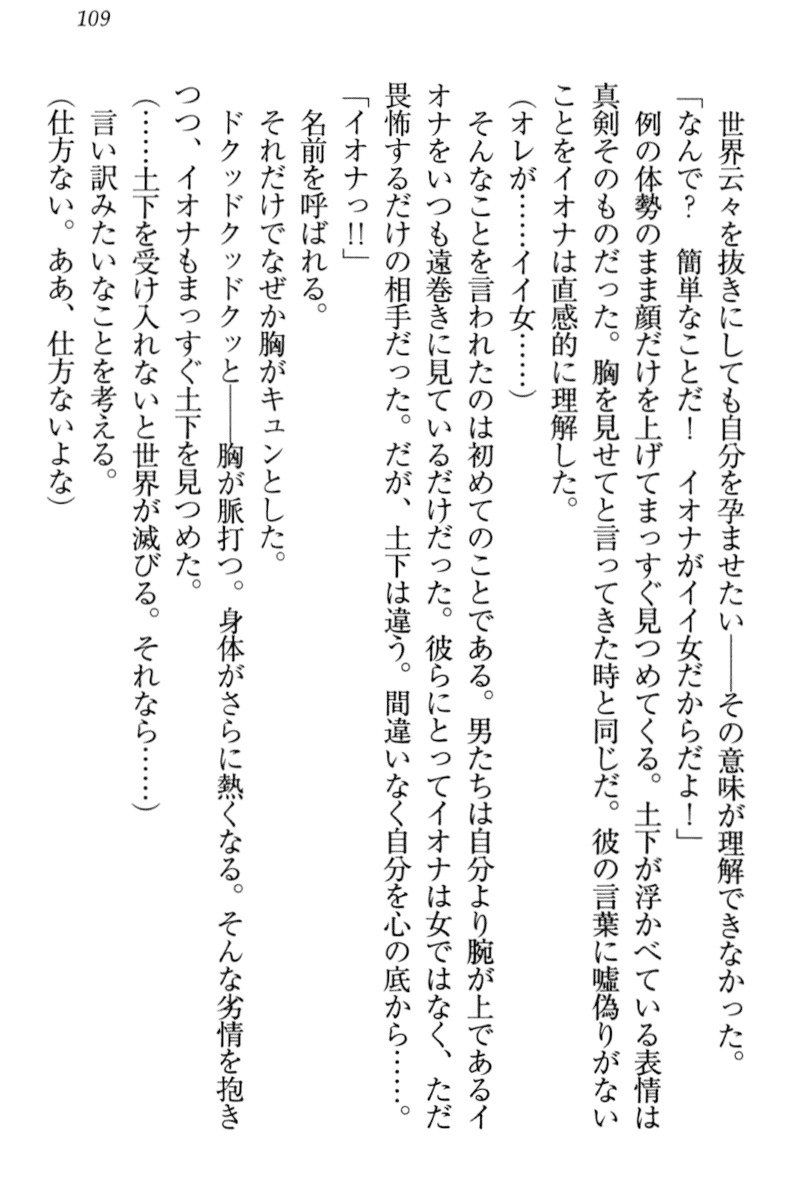 109
世界云々を抜きにしても自分を孕ませたい――その意味が理解できなかった。
「なんで？　簡単なことだ！　イオナがイイ女だからだよ！」
例の体勢のまま顔だけを上げてまっすぐ見つめてくる。土下が浮かべている表情は
真剣そのものだった。胸を見せてと言ってきた時と同じだ。彼の言葉に嘘偽りがない
ことをイオナは直感的に理解した。
（オレが……イイ女……）
そんなことを言われたのは初めてのことである。男たちは自分より腕が上であるイ
オナをいつも遠巻きに見ているだけだった。彼らにとってイオナは女ではなく、ただ
畏怖するだけの相手だった。だが、土下は違う。間違いなく自分を心の底から……。
「イオナっ!!」
名前を呼ばれる。
それだけでなぜか胸がキュンとした。
ドクッドクッドクッと――胸が脈打つ。身体がさらに熱くなる。そんな劣情を抱き
つつ、イオナもまっすぐ土下を見つめた。
（……土下を受け入れないと世界が滅びる。それなら……）
言い訳みたいなことを考える。
（仕方ない。ああ、仕方ないよな）